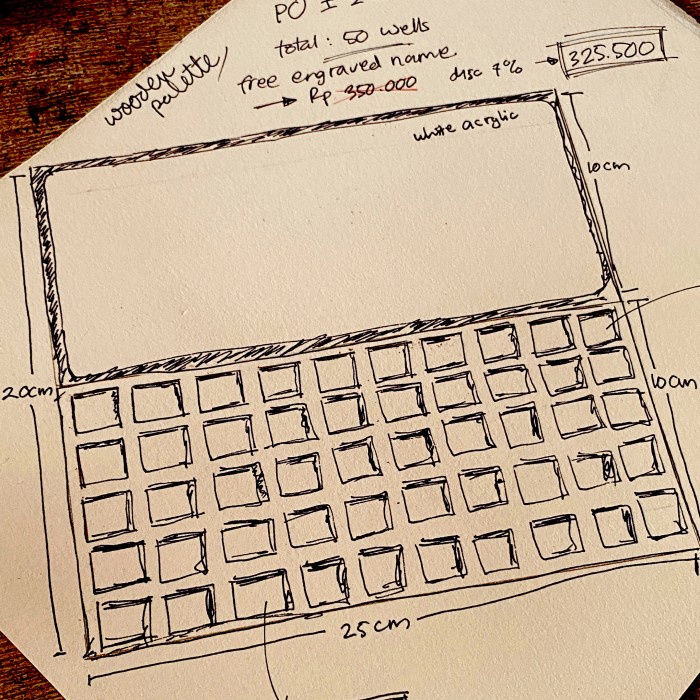 PO ± 2
total : 50 wells
free engraved name
wooden
palette
→ Rp 350.000
disc 7% → 325.500
white acrylic
10cm
20cm
10cm
25cm